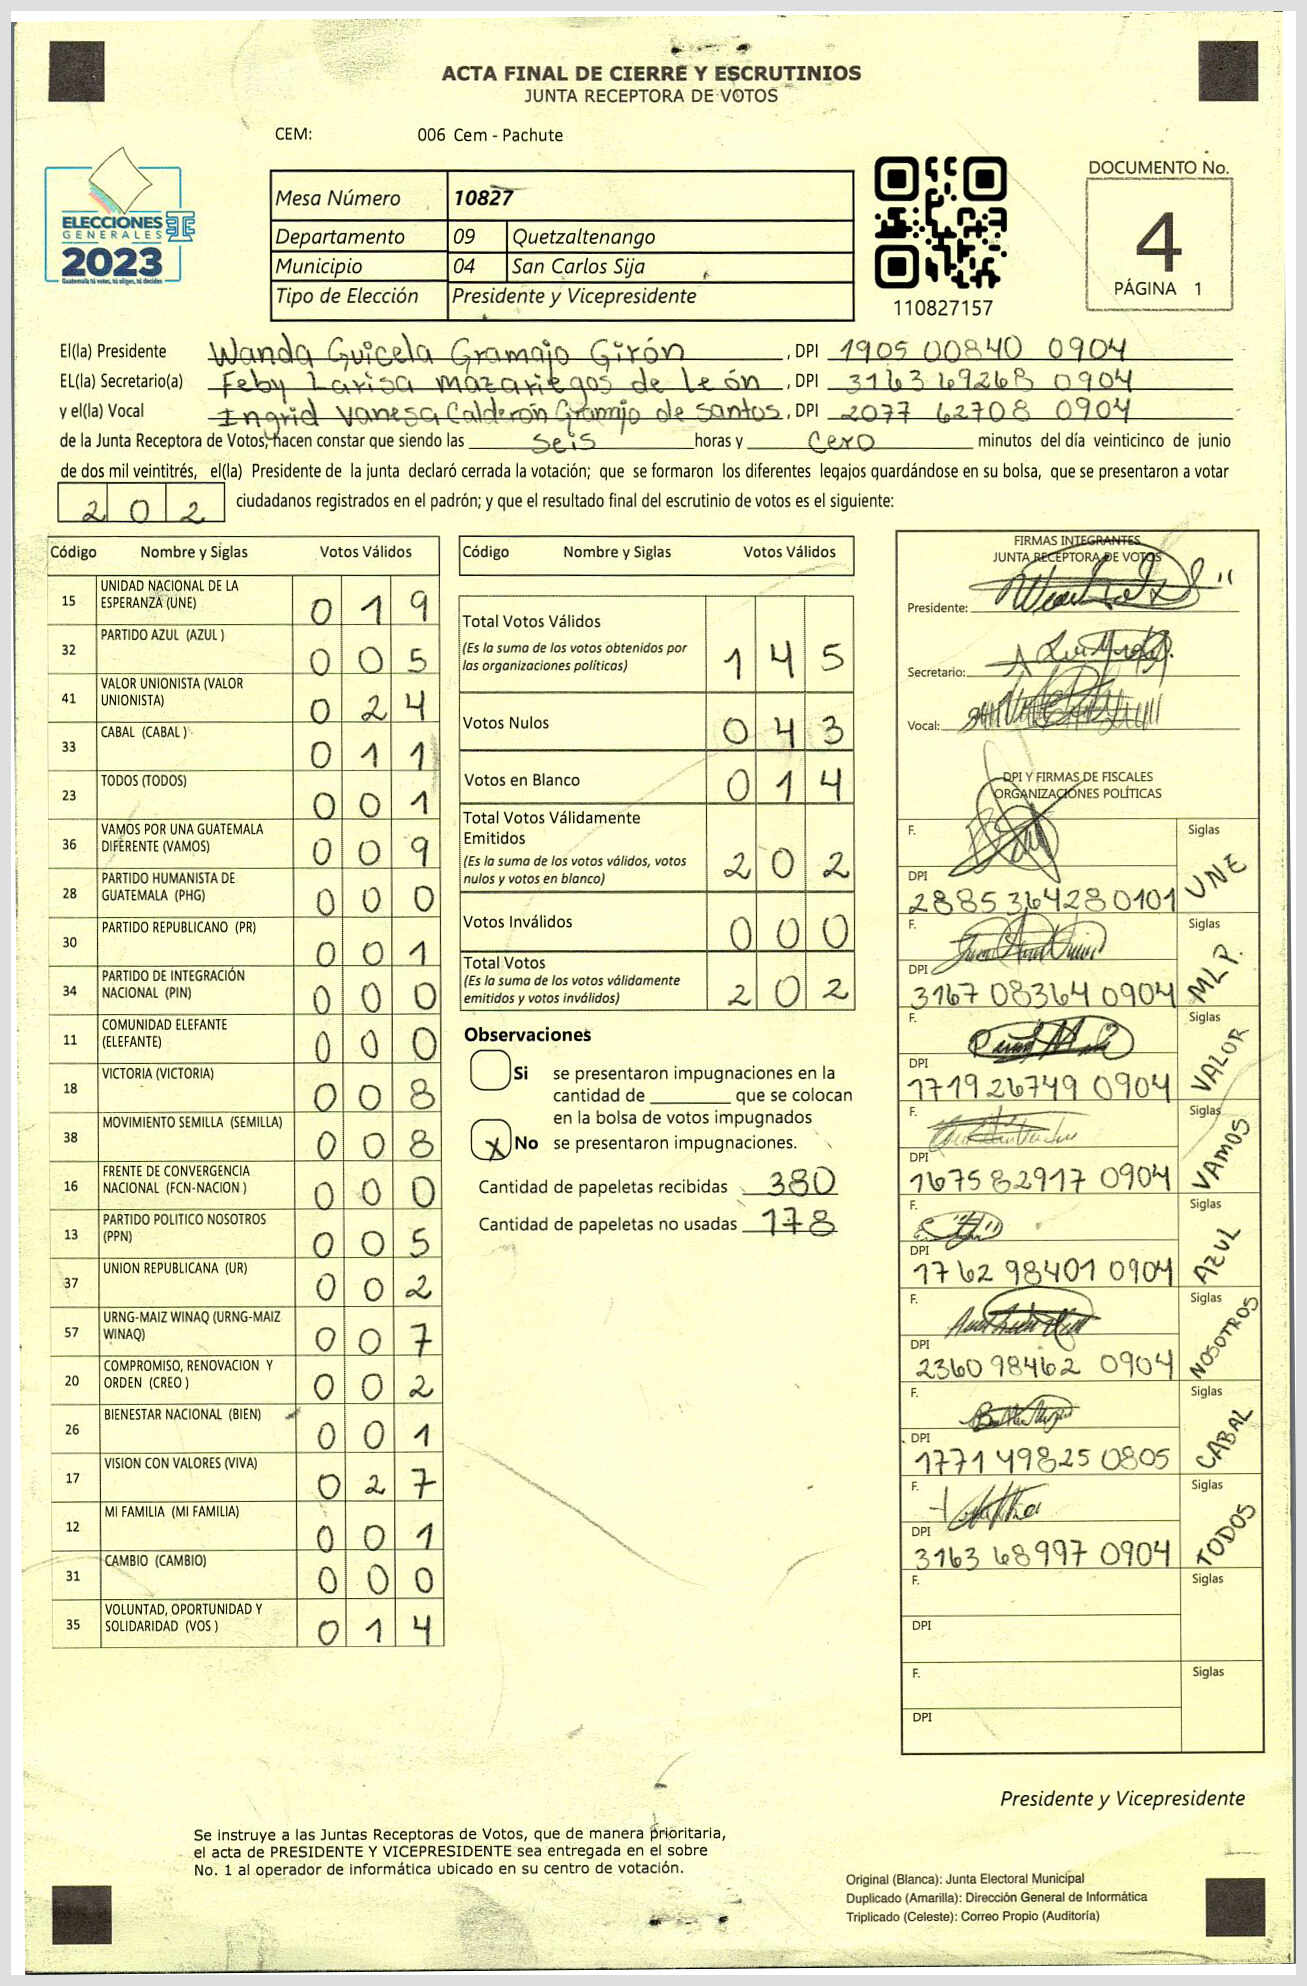 ACTA FINAL DE CIERRE Y ESCRUTINIOS
JUNTA RECEPTORA DE VOTOS
CEM: 006 Cem - Pachute
ELECCIONES
GENERALES
2023
Guatemala tú votas, tú eliges, tú decides
Mesa Número 10827
Departamento 09 Quetzaltenango
Municipio 04 San Carlos Sija
Tipo de Elección Presidente y Vicepresidente
110827157
DOCUMENTO No.
4
PÁGINA 1
El(la) Presidente Wanda Guicela Gramajo Girón, DPI 1905 00840 0904
EL(la) Secretario(a) Feby Larisa mazariegos de león, DPI 3163 69268 0904
y el(la) Vocal Ingrid Vanesa Calderón Gramajo de Santos, DPI 2077 62708 0904
de la Junta Receptora de Votos, hacen constar que siendo las seis horas y cero minutos del día veinticinco de junio
de dos mil veintitrés, el(la) Presidente de la junta declaró cerrada la votación; que se formaron los diferentes legajos guardándose en su bolsa, que se presentaron a votar
202 ciudadanos registrados en el padrón; y que el resultado final del escrutinio de votos es el siguiente:
Código Nombre y Siglas Votos Válidos
15 UNIDAD NACIONAL DE LA ESPERANZA (UNE) 019
32 PARTIDO AZUL (AZUL ) 005
41 VALOR UNIONISTA (VALOR UNIONISTA) 024
33 CABAL (CABAL ) 011
23 TODOS (TODOS) 001
36 VAMOS POR UNA GUATEMALA DIFERENTE (VAMOS) 009
28 PARTIDO HUMANISTA DE GUATEMALA (PHG) 000
30 PARTIDO REPUBLICANO (PR) 001
34 PARTIDO DE INTEGRACIÓN NACIONAL (PIN) 000
11 COMUNIDAD ELEFANTE (ELEFANTE) 000
18 VICTORIA (VICTORIA) 008
38 MOVIMIENTO SEMILLA (SEMILLA) 008
16 FRENTE DE CONVERGENCIA NACIONAL (FCN-NACION ) 000
13 PARTIDO POLITICO NOSOTROS (PPN) 005
37 UNION REPUBLICANA (UR) 002
57 URNG-MAIZ WINAQ (URNG-MAIZ WINAQ) 007
20 COMPROMISO, RENOVACION Y ORDEN (CREO ) 002
26 BIENESTAR NACIONAL (BIEN) 001
17 VISION CON VALORES (VIVA) 027
12 MI FAMILIA (MI FAMILIA) 001
31 CAMBIO (CAMBIO) 000
35 VOLUNTAD, OPORTUNIDAD Y SOLIDARIDAD (VOS ) 014
Código Nombre y Siglas Votos Válidos
Total Votos Válidos 145
(Es la suma de los votos obtenidos por
las organizaciones políticas)
Votos Nulos 043
Votos en Blanco 014
Total Votos Válidamente
Emitidos 202
(Es la suma de los votos válidos, votos
nulos y votos en blanco)
Votos Inválidos 000
Total Votos 202
(Es la suma de los votos válidamente
emitidos y votos inválidos)
Observaciones
Si se presentaron impugnaciones en la
cantidad de ________ que se colocan
en la bolsa de votos impugnados
X No se presentaron impugnaciones.
Cantidad de papeletas recibidas 380
Cantidad de papeletas no usadas 178
FIRMAS INTEGRANTES
JUNTA RECEPTORA DE VOTOS
Presidente:
Secretario:
Vocal:
DPI Y FIRMAS DE FISCALES
ORGANIZACIONES POLÍTICAS
F. Siglas UNE
DPI 2885 36428 0101
F. Siglas MLP.
DPI 3167 08364 0904
F. Siglas VALOR
DPI 1719 26749 0904
F. Siglas VAMOS
DPI 1675 82917 0904
F. Siglas AZUL
DPI 1762 98401 0904
F. Siglas NOSOTROS
DPI 2360 98462 0904
F. Siglas CABAL
DPI 1771 49825 0805
F. Siglas TODOS
DPI 3163 68997 0904
F. Siglas
DPI
F. Siglas
DPI
Presidente y Vicepresidente
Se instruye a las Juntas Receptoras de Votos, que de manera prioritaria,
el acta de PRESIDENTE Y VICEPRESIDENTE sea entregada en el sobre
No. 1 al operador de informática ubicado en su centro de votación.
Original (Blanca): Junta Electoral Municipal
Duplicado (Amarilla): Dirección General de Informática
Triplicado (Celeste): Correo Propio (Auditoría)